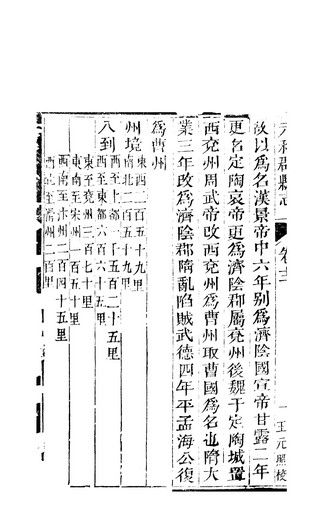 元和郡縣志 卷十二 一 王元照校
故以爲名漢景帝中六年别爲濟陰國宣帝甘露二年
更名定陶哀帝更爲濟陰郡屬兖州後魏于定陶城置
西兖州周武帝改西兖州爲曹州取曹國爲名也隋大
業三年改爲濟陰郡隋亂陷賊武德四年平孟海公復
爲曹州
州境東西二百五十九里
南北二百五十九里
八到西至上都一千五百二十五里
西至東都六百六十五里
東至兖州三百七十里
東南至宋州一百五十里
西南至汴州二百四十五里
西北至滑州二百里